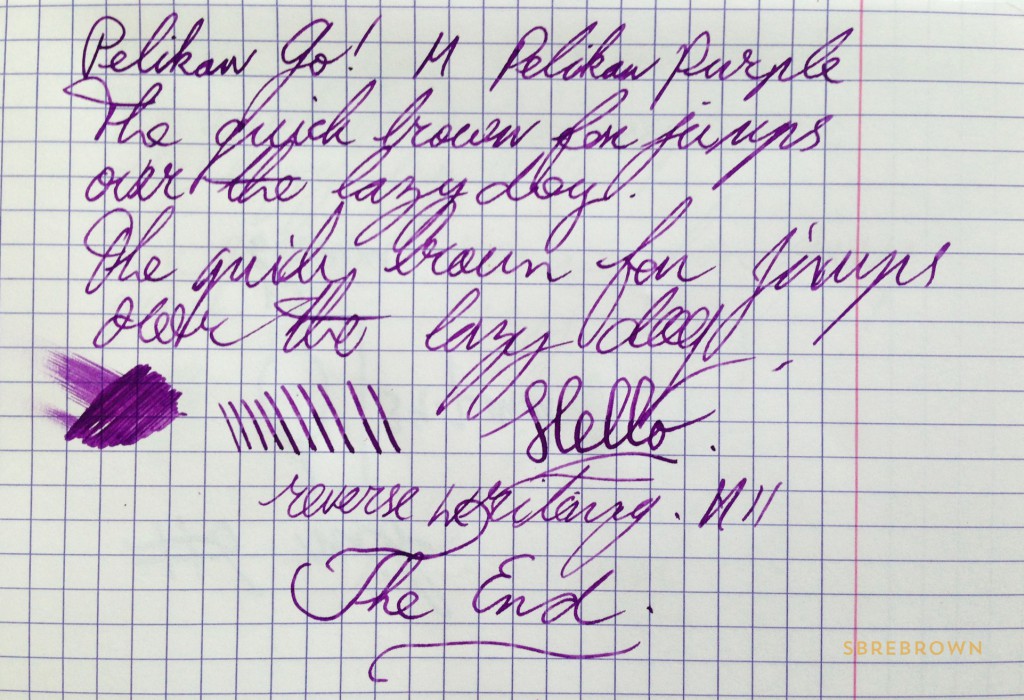 Pelikan Go! M Pelikan Purple
The quick brown fox jumps
over the lazy dog.
The quick brown fox jumps
over the lazy dog!
Hello.
reverse writing. M II
The End.
SBREBROWN